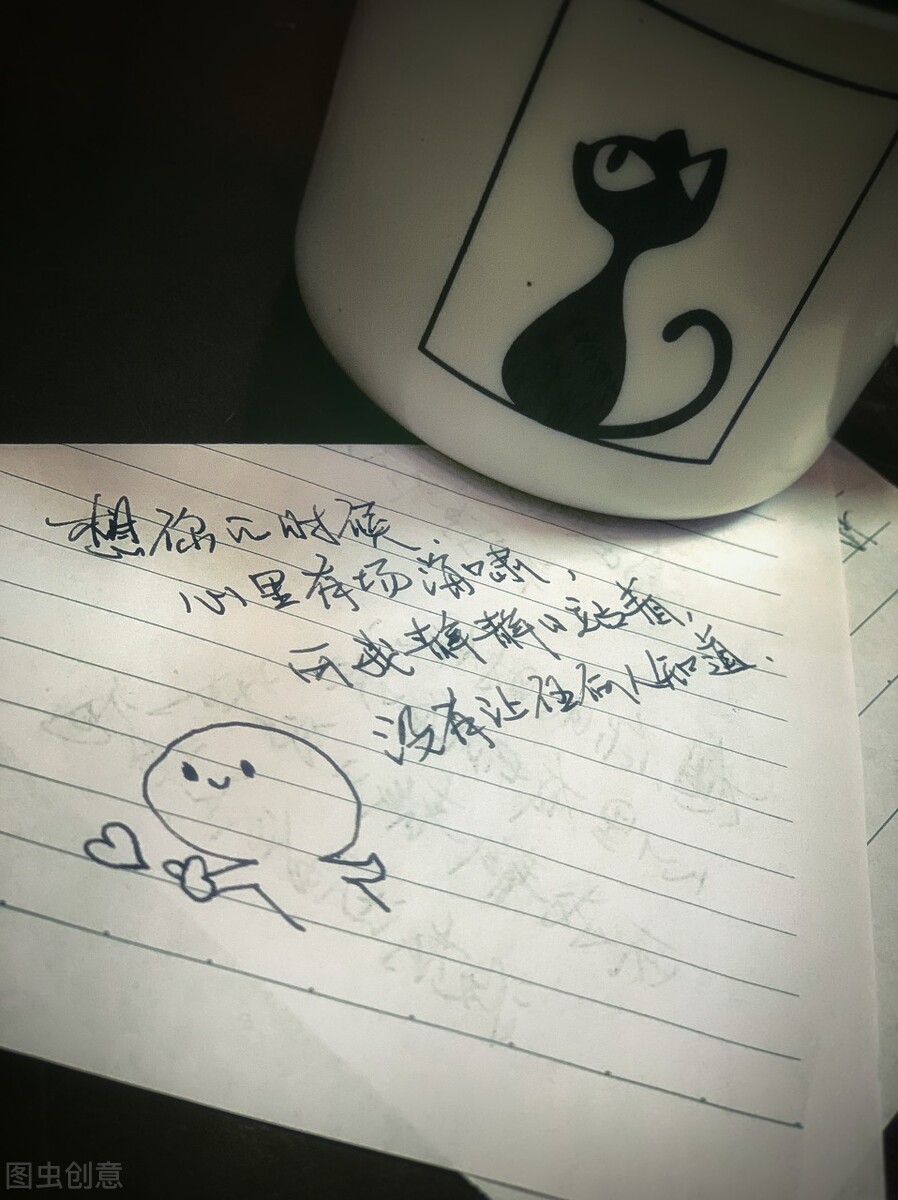 想你的时候,
心里有场海啸,
可我静静的站着,
没有让任何人知道.
图虫创意